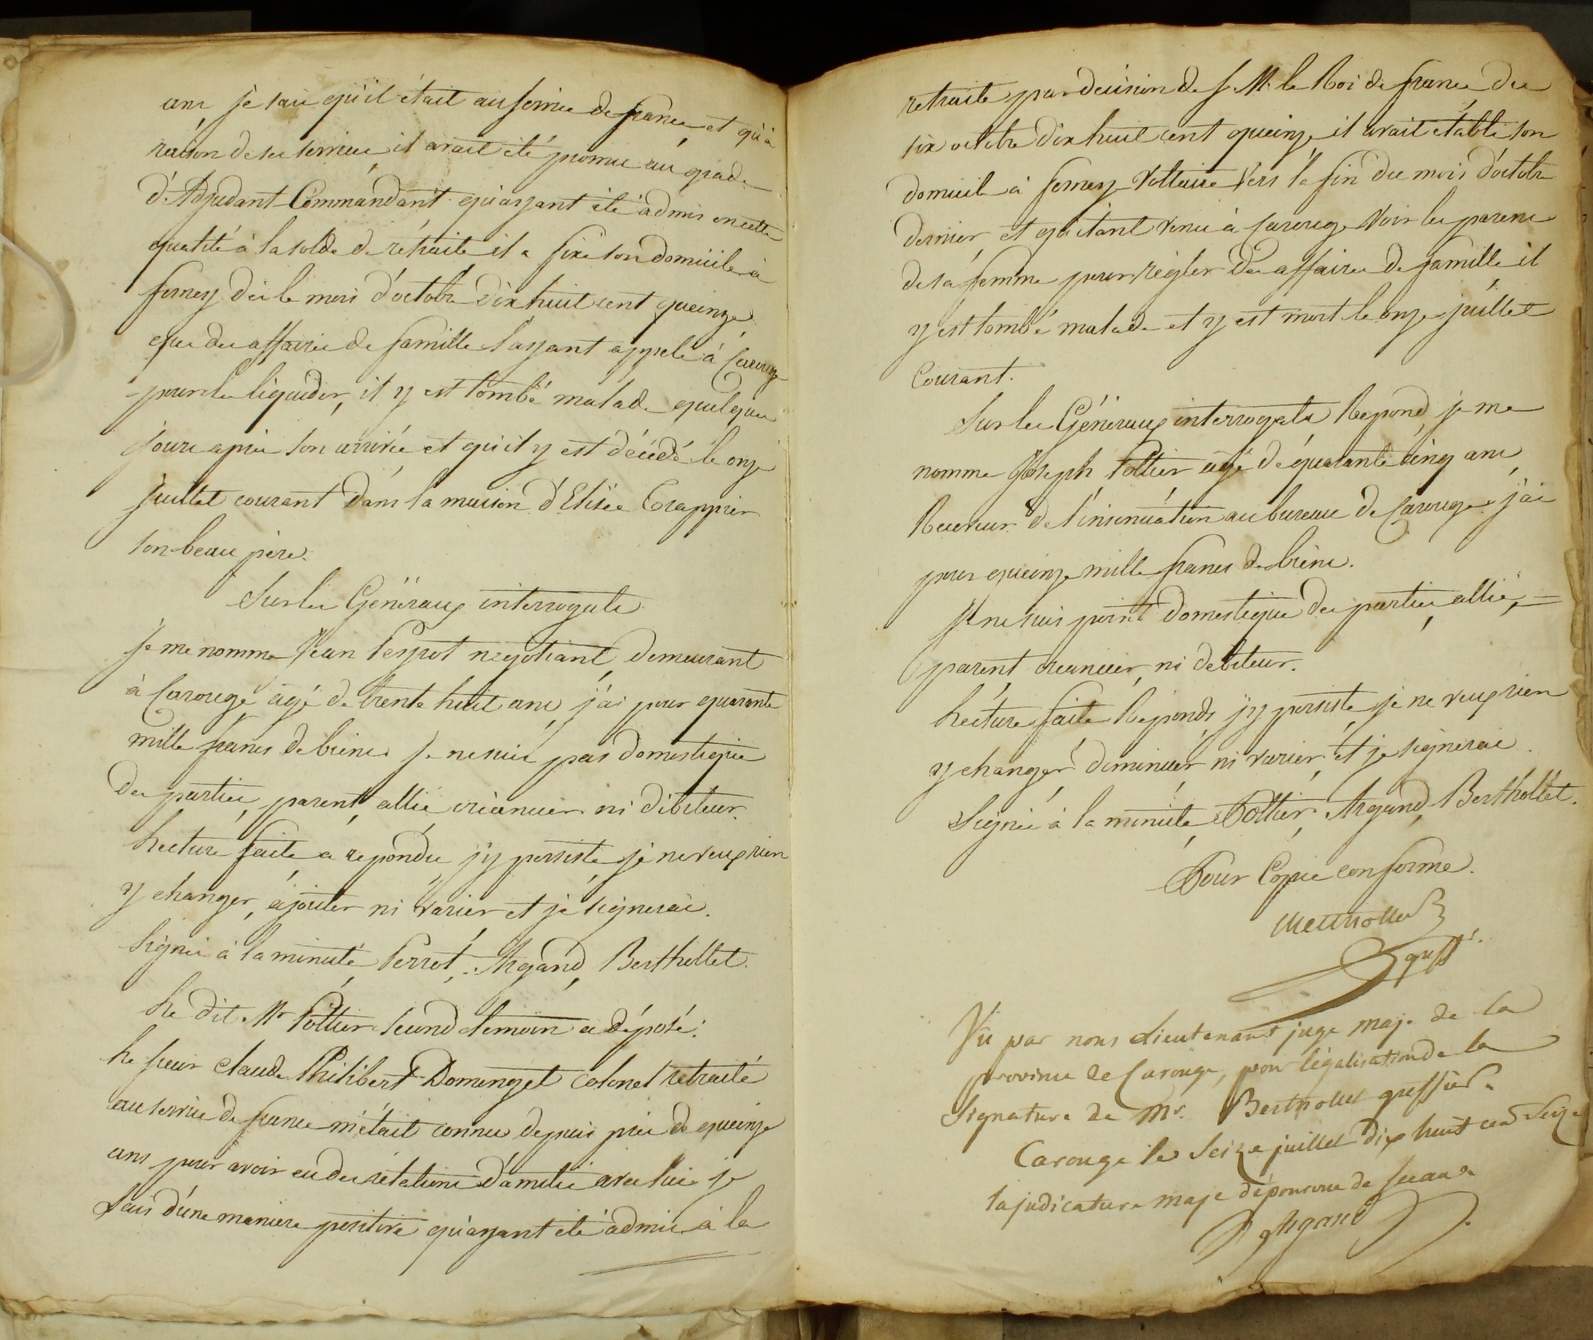 ans je sais qu'il était au service de france et qu'à
raison de ses services il avait été promu au grade
d'Adjudant Commandant qu'ayant été admis en cette
qualité à la solde de retraite il a fixé son domicile à
ferney dès le mois d'octobre dix huit cent queinze
que des affaires de famille l'ayant appelé à Carouge
pour les liquider, il y est tombé malade quelques
jours après son arrivée et qu'il y est décédé le onze
juillet courant dans la maison d'Elisée Trappier
son beau père.
Sur les Généraux interrogats
Je me nomme Jean Perret négotiant demeurant
à Carouge âgé de trente huit ans j'ai pour quarante
mille francs de biens Je ne suis pas domestique
des parties, parent, allié créancier ni débiteur.
Lecture faite a repondu j'y persiste je ne veux rien
y changer, ajouter ni varier et je signerai.
Signé à la minute Perret, Argand, Berthollet.
Le dit Mr Pottier second témoin a déposé:
Le sieur Claude Philibert Domenget colonel retraité
au service de france m'était connu depuis près de queinze
ans pour avoir eu des rélations d'amitié avec lui je
Sais d'une maniere positive qu'ayant été admis à la
retraite par décision de S. M. le Roi de france du
six octobre dix huit cent queinze il avait établi son
domicile à ferney Voltaire vers la fin du mois d'octobre
dernier et qu'étant venu à Carouge voir les parens
de sa femme pour régler des affaires de famille, il
y est tombé malade et y est mort le onze juillet
Courant.
Sur les Généraux interrogats Repond, je me
nomme Joseph Pottier agé de quarante cinq ans
Receveur de l'insinuation au bureau de Carouge j'ai
pour queinze mille francs de biens.
Je ne suis point domestique des parties, allié,
parent créancier, ni debiteur.
Lecture faite Reponds j'y persiste, je ne veux rien
y changer diminuer ni varier, et je signerai.
Signé à la minute, Pottier, Argand, Berthollet.
Pour Copie conforme.
Berthollet
greff.r
Vû par nous Lieutenant juge maje de la
province de Carouge, pour légalisation de la
Signature de Mr. Berthollet greffier
Carouge le Seize juillet dix huit cent Seize
la judicature maje dépourvue de Sceau
Argand